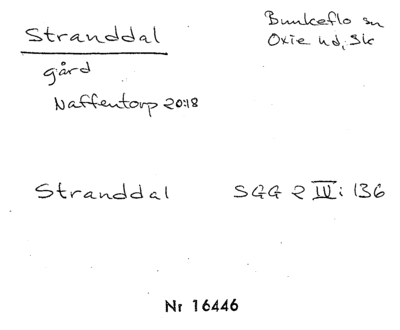 Stranddal
Bunkeflo sn
Oxie hd, Sk
gård
Naffentorp 20:18
Stranddal SGG 2 IV: 136
Nr 16446